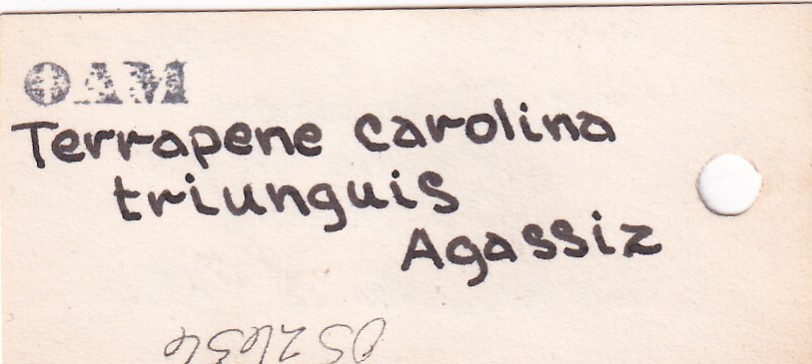 OAM
Terrapene carolina
triunguis
Agassiz